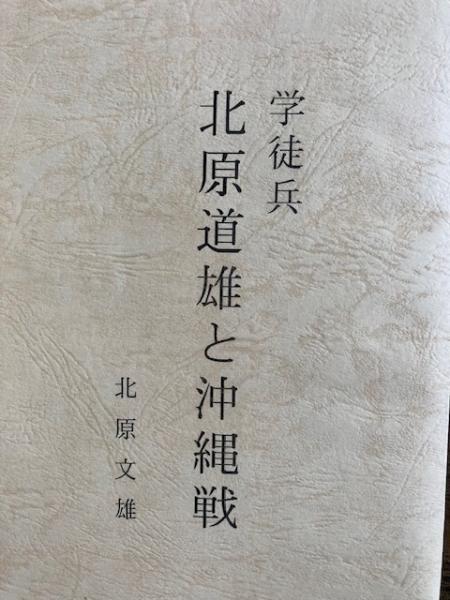 学徒兵
北原道雄と沖縄戦
北原文雄